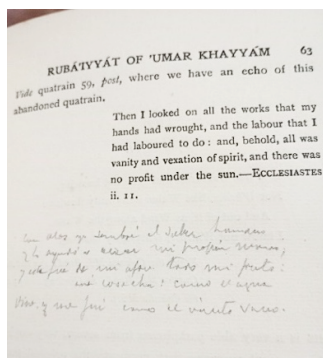 RUBÁ'IYYÁT OF 'UMAR KHAYYÁM 63
Vide quatrain 59, post, where we have an echo of this
abandoned quatrain.
Then I looked on all the works that my
hands had wrought, and the labour that I
had laboured to do: and, behold, all was
vanity and vexation of spirit, and there was
no profit under the sun.—ECCLESIASTES
ii. 11.
Con ellos yo sembré el saber humano
y lo ayudó a crecer mi propia mano,
y este fué de mi afán todo mi fruto:
mi cosecha: como el agua
vine. y me fuí como el viento vano.